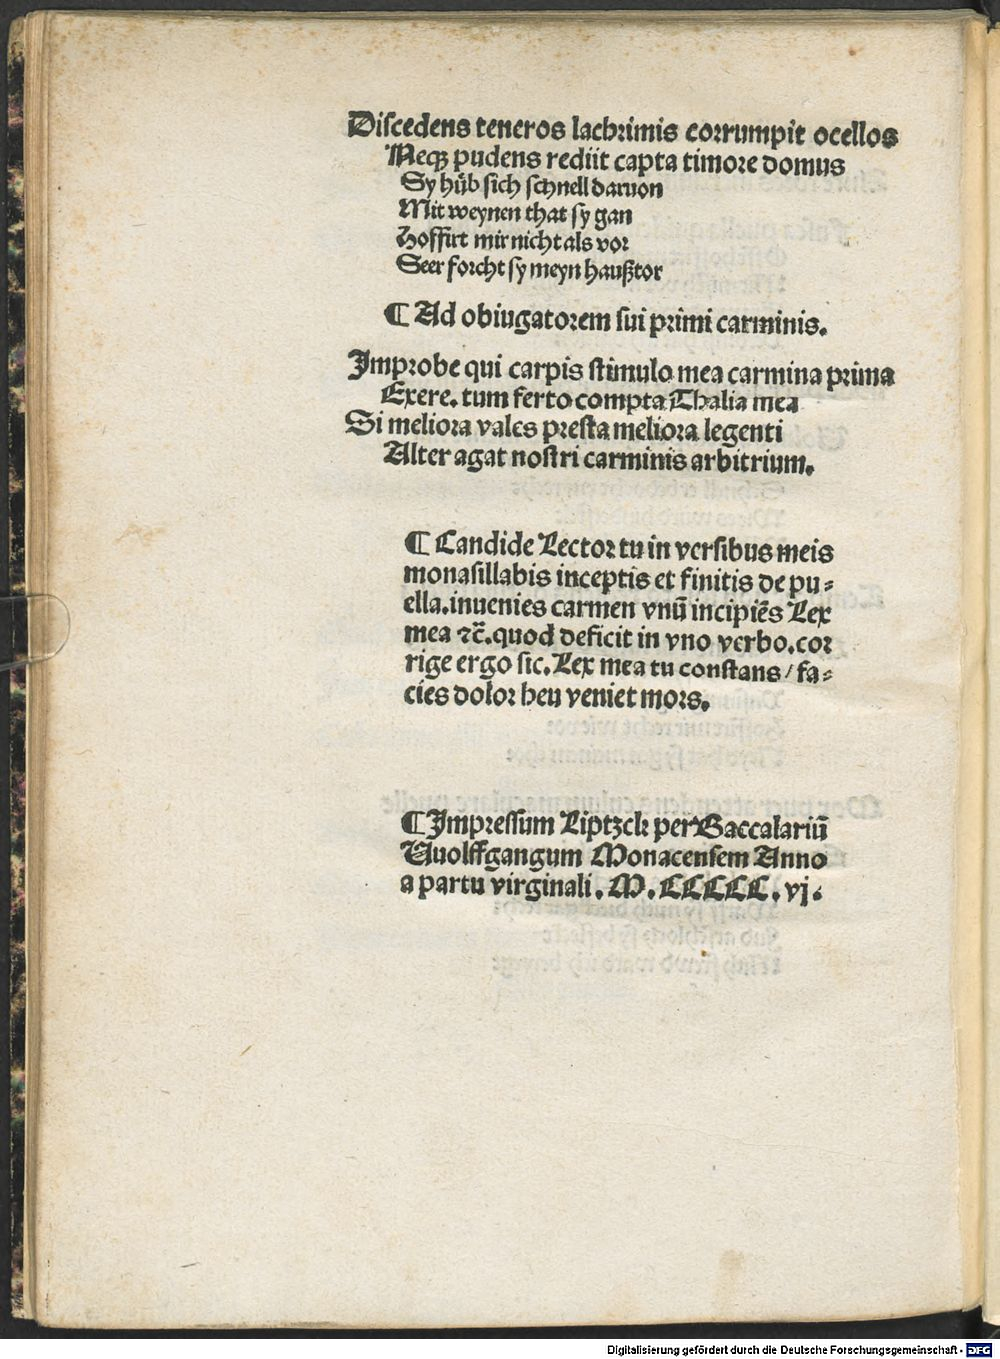 Discedens teneros lachrimis corrumpit ocellos
Meqꝫ pudens rediit capta timore domus
Sy hůb sich schnell daruon
Mit weynen that sy gan
Hoffirt mir nicht als vor
Seer forcht sy meyn haußtor
¶ Ad obiugatorem sui primi carminis.
Improbe qui carpis stimulo mea carmina prima
Exere. tum ferto compta Thalia mea
Si meliora vales presta meliora legenti
Alter agat nostri carminis arbitrium.
¶ Candide Lector tu in versibus meis
monasillabis inceptis et finitis de pu⸗
ella. inuenies carmen vnū incipiēs Lex
mea ⁊c̄. quod deficit in vno verbo. cor
rige ergo sic. Lex mea tu constans / fa⸗
cies dolor heu veniet mors.
¶ Impressum Liptzck per Baccalariū
Wuolffgangum Monacensem Anno
a partu virginali. M. CCCCC. vj.
Digitalisierung gefördert durch die Deutsche Forschungsgemeinschaft - DFG